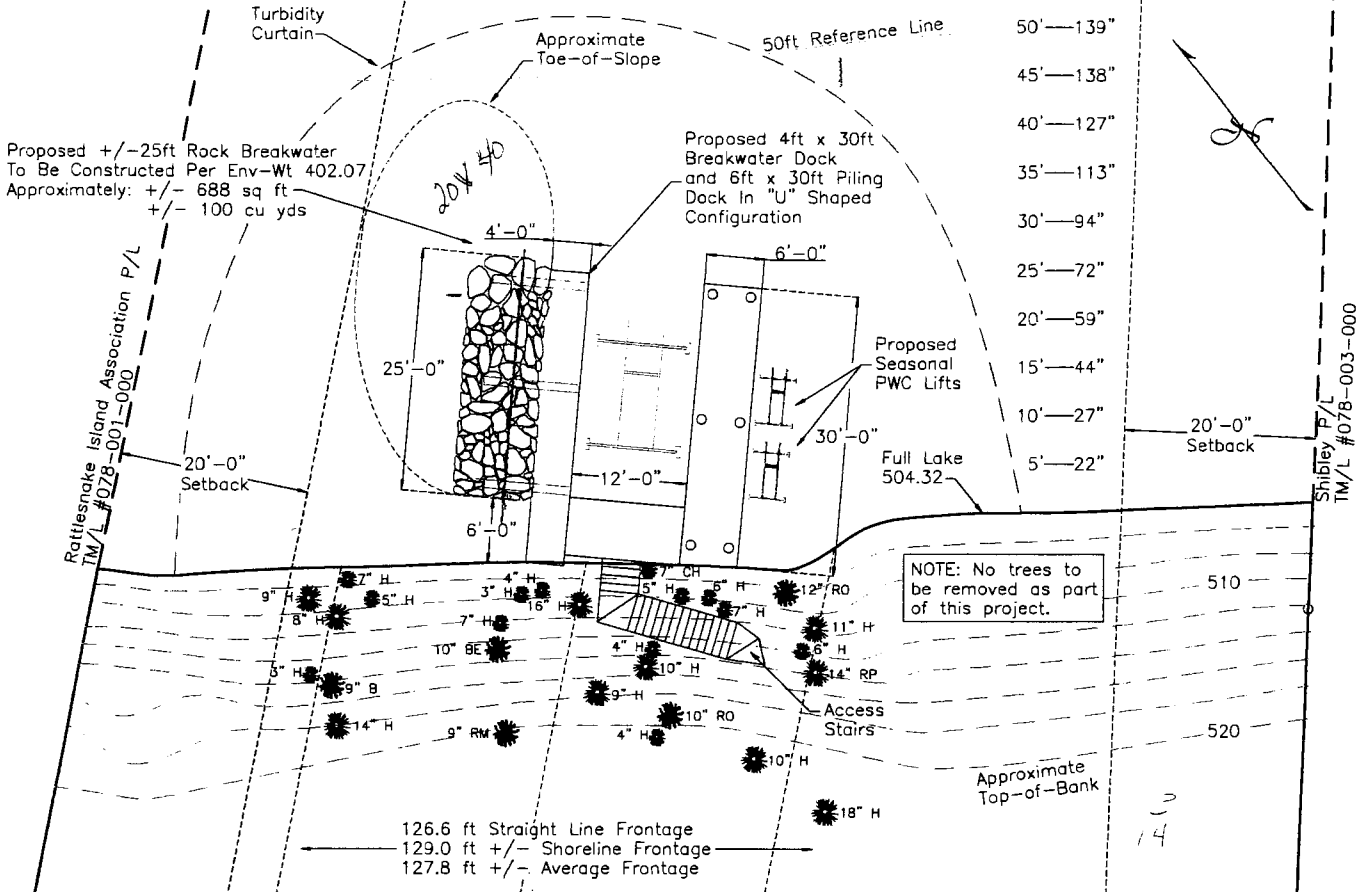 Turbidity
Curtain
Approximate
Toe-of-Slope
50ft Reference Line
50'—139"
45'—138"
40'—127"
35'—113"
30'—94"
25'—72"
20'—59"
15'—44"
10'—27"
5'—22"
Proposed +/-25ft Rock Breakwater
To Be Constructed Per Env-Wt 402.07
Approximately: +/- 688 sq ft
+/- 100 cu yds
20 X 40
Proposed 4ft x 30ft
Breakwater Dock
and 6ft x 30ft Piling
Dock In "U" Shaped
Configuration
4'-0"
6'-0"
25'-0"
Proposed
Seasonal
PWC Lifts
30'-0"
12'-0"
6'-0"
Full Lake
504.32
Rattlesnake Island Association P/L
TM/L #078-001-000
20'-0"
Setback
20'-0"
Setback
Shibley P/L
TM/L #078-003-000
NOTE: No trees to
be removed as part
of this project.
510
520
7" H
9" H
5" H
8" H
4" H
3" H
16" H
7" H
10" BE
3" H
9" B
14" H
9" RM
7" CH
5" H
6" H
7" H
12" RO
11" H
6" H
14" RP
4" H
10" H
9" H
10" RO
4" H
10" H
18" H
Access
Stairs
Approximate
Top-of-Bank
14
126.6 ft Straight Line Frontage
129.0 ft +/- Shoreline Frontage
127.8 ft +/- Average Frontage